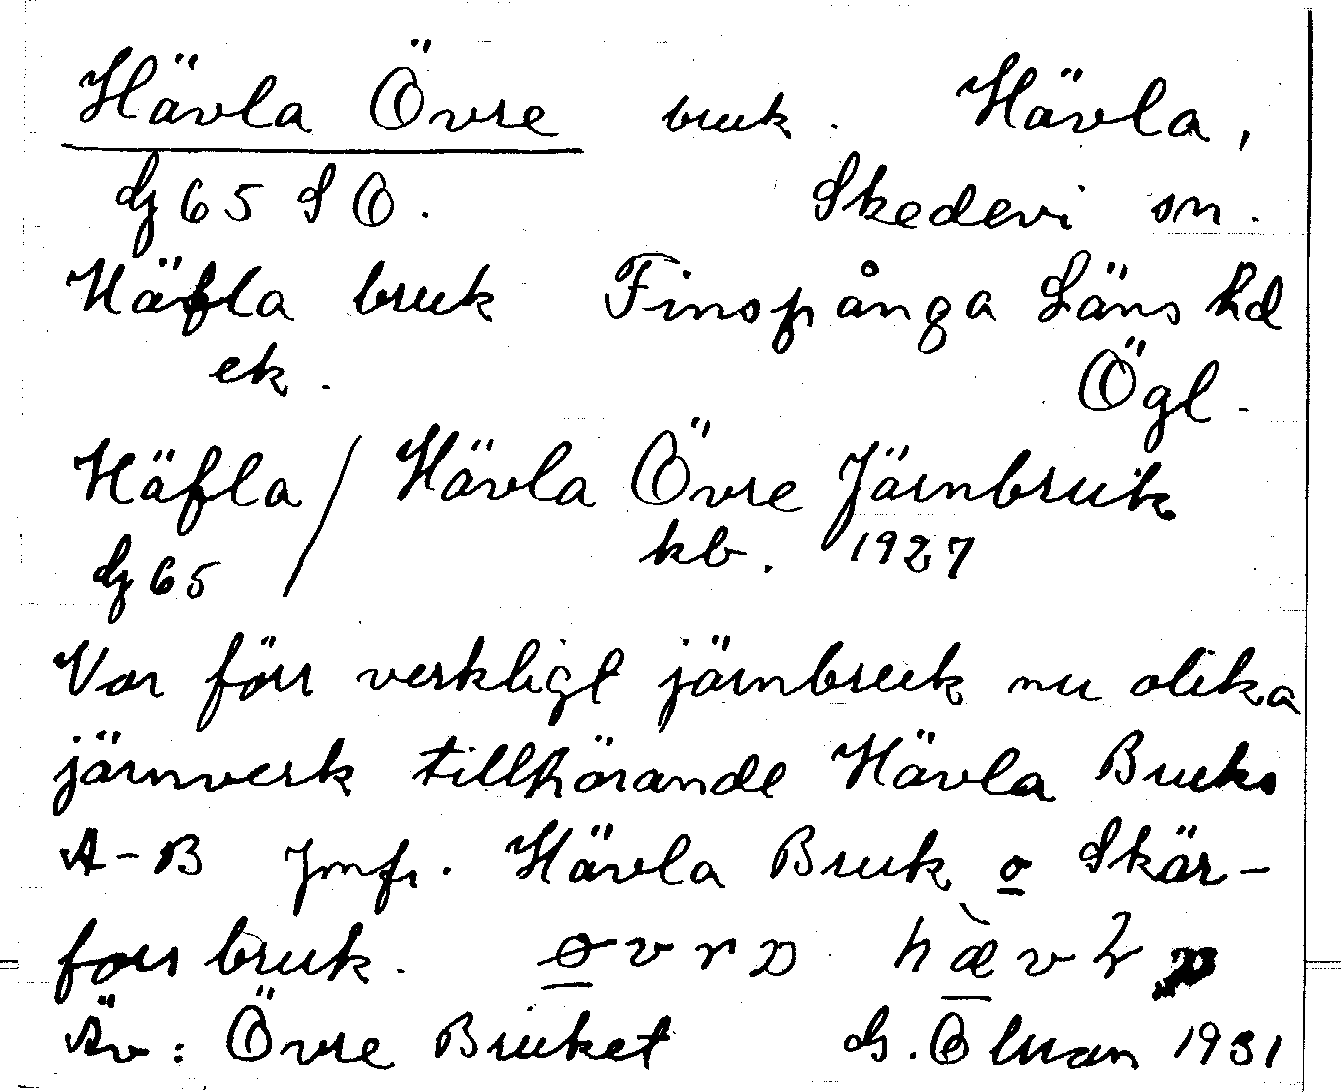 Hävla Övre bruk. Hävla,
dz 65 SO. Skedevi sn.
Häfla bruk Finspånga Läns hd
ek. Ögl.
Häfla / Hävla Övre Järnbruk
dz 65 kb. 1927
Var förr verkligt järnbruk nu olika
järnverk tillhörande Hävla Bruks
A-B Jmfr. Hävla Bruk o Skär-
forsbruk. øvrə hævlə
Äv: Övre Bruket G. Ölman 1931